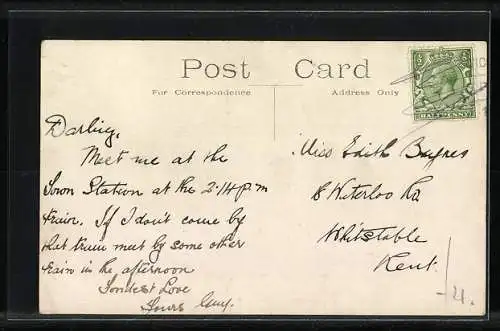 Post Card
For Correspondence
Address Only
HALFPENNY
Darling,
Meet me at the
Town Station at the 2.14 p.m
train. If I don't come by
that train meet by some other
train in the afternoon
Fondest Love
Yours Guy.
Miss Edith Baynes
8 Waterloo Rd
Whitstable
Kent.